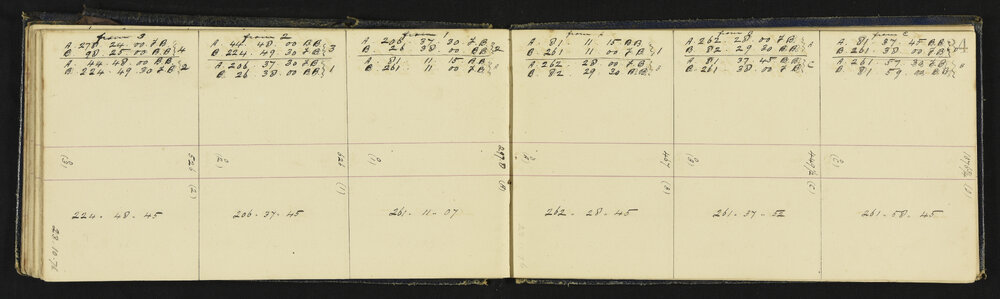 from 3
A. 278 24. 00 F.B.
B. 98. 25 00 B.B. 4
A. 44. 48. 00 B.B.
B. 224. 49. 30 F.B. 2
from 2
A. 44. 48. 00 B.B.
B. 224. 49. 30 F.B. 3
A. 206. 37. 30 F.B.
B. 26. 38. 00 B.B. 1
from 1
A. 206. 37. 30 F.B.
B. 26 38. 00 B.B. 2
A. 81. 11. 15 B.B.
B. 261. 11 00 F.B.
from
A. 81. 11 15 B.B.
B. 261. 11 00 F.B. 1
A. 262. 28 00 F.B.
B. 82 29 30 B.B.
from
A. 262 28 00 F.B.
B. 82 29 30 B.B.
A. 81 37. 45 B.B.
B. 261. 38. 00 F.B.
from
A. 81 37. 45 B.B.
B. 261. 38 00 F.B.
A. 261. 57 30 F.B.
B. 81 59. 00 B.B.
(3)
526
(2)
(2)
526
(1)
(1)
297.0
467
(3)
224 - 48 - 45
206 - 37 - 45
261 - 11 - 07
262 - 28 - 45
261 - 37 - 52
261 - 58 - 45